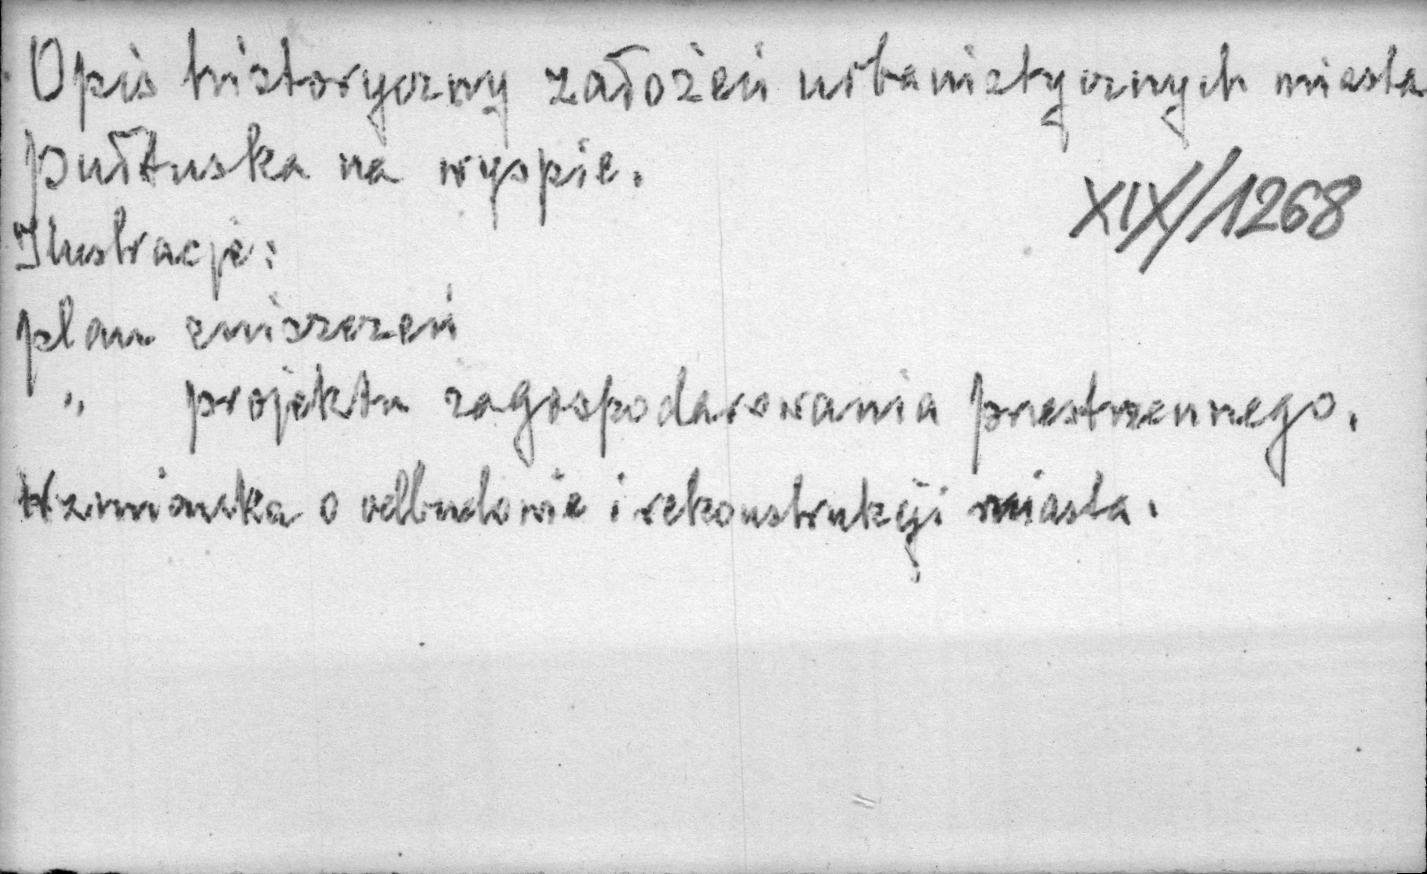 Opis historyczny założeń urbanistycznych miasta
Pułtuska na wyspie.
XIX/1268
Ilustracje:
plan zniszczeń
„ projektu zagospodarowania przestrzennego.
Wzmianka o odbudowie i rekonstrukcji miasta.